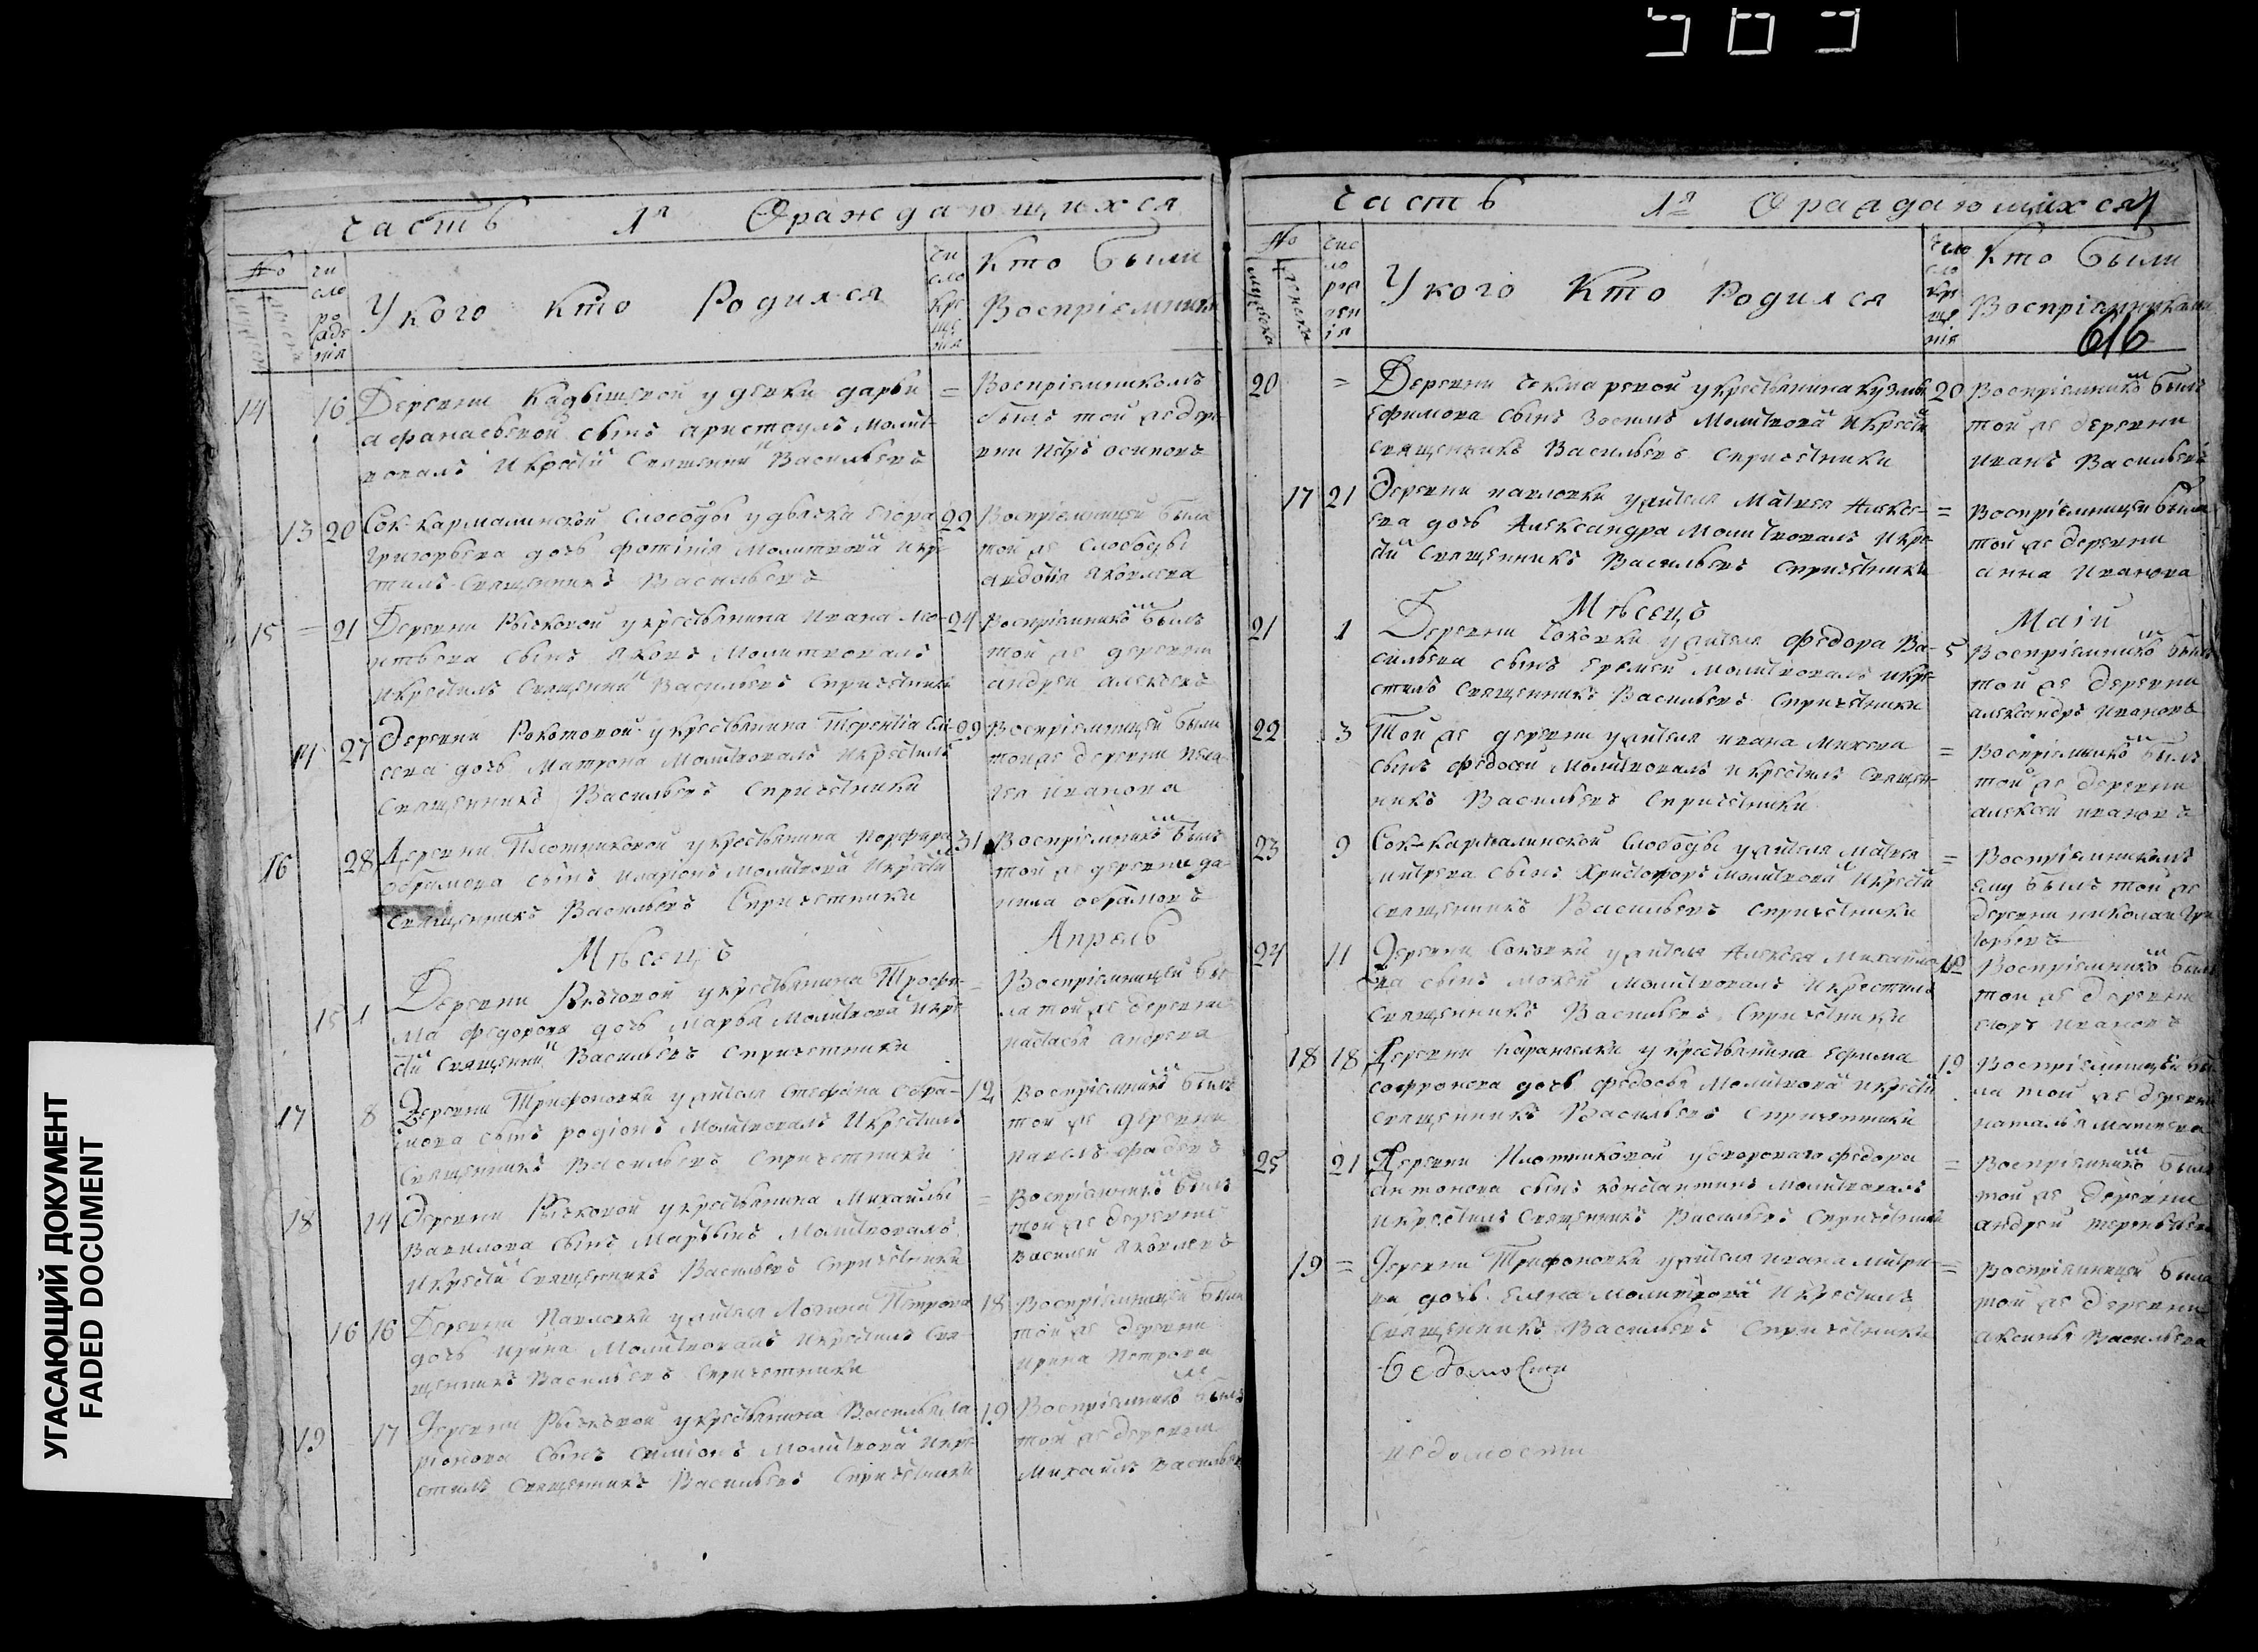 УГАСАЮЩИЙ ДОКУМЕНТ
FADED DOCUMENT
часть 1я О раждающихся
№
чи
сло
ро
жде
нія
У кого кто Родился
чи
сло
кре
ще
нія
Кто были
Воспріемники
14 16 Деревни Кадышевой у девки дарьи =
афанасьевой сынъ аристоулъ молит-
вовалъ и крести священни Васильевъ
Воспріемникомъ
былъ той же дере
вни петръ осиповъ
13 20 Сок-кармалинской слободы у дьячка егора 22
григорьева дочь фотинія молитвова и кре-
стилъ священникъ Васильевъ
Воспріемницей была
той же слободы
авдотія яковлева
15 = 21 Деревни Рычковой у крестьянина ивана ле- 24
онтьева сынъ яковъ молитвовалъ
и крестилъ священни Васильевъ с причетники
Воспріемнико былъ
той же деревни
андреи алексеевъ
14 27 Деревни Рокотовой у крестьянина терентіа ели- 29
сеева дочь матрона молитвовалъ и крестилъ
священникъ Васильевъ с причетники
Воспріемницей была
той же деревни пела-
гея иванова
16 28 Деревни Плотниковой у крестьянина порфира 31
абрамова сынъ иларіонъ молитвова и крести
священникъ Васильевъ с причетники
Воспріемнико былъ
той же деревни да-
нила абрамовъ
Мѣсецъ Апрель
15 1 Деревни Рычковой у крестьянина Трофи- =
ма федорова дочь марья молитвова и кре-
сти священни Васильевъ с причетники
Воспріемницей бы-
ла той же деревни
настасья андреева
17 8 Деревни Трифоновки у жителя стефана абра- 12
мова сынъ родіонъ молитвовалъ и крестилъ
священникъ Васильевъ с причетники
Воспріемнико былъ
той же деревни
павелъ фадеевъ
18 14 Деревни Рычковой у крестьянина михаилы =
вавилова сынъ мартынъ молитвовалъ
и крести священникъ Васильевъ с причетники
Воспріемнико былъ
той же деревни
василей яковлевъ
16 16 Деревни Павловки у жителя логина Петрова 18
дочь ирина молитвовалъ и крестилъ свя-
щенникъ Васильевъ с причетники
Воспріемницей была
той же деревни
ирина петрова
19 17 Деревни Рычковой у крестьянина Василья ла- 19
ріонова сынъ симіонъ молитвова и кре-
стилъ священникъ Васильевъ с причетники
Воспріемнико былъ
той же деревни
михаилъ Васильев
часть 1я О раждающихся
616
№
мужеска
женска
чис
ло
рож
ден
ія
У кого Кто Родился
число
кре
ще
нія
Кто были
Воспріемниками
20 = Деревни чекмаревой у крестьянина кузмы 20
ефимова сынъ зосимъ молитвова и крести
священникъ Васильевъ с причетники
Воспріемнико былъ
той же деревни
иванъ Васильевъ
17 21 Деревни павловки у жителя матвея алексе- =
ева дочь Александра молитвовалъ и кре-
сти священникъ Васильевъ с причетники
Воспріемницей была
той же деревни
анна иванова
Мѣсецъ Маій
21 1 Деревни Соковки у жителя федора Ва- 5
сильева сынъ еремей молитвовалъ и кре-
стилъ священникъ Васильевъ с причетники
Воспріемнико былъ
той же деревни
александръ ивановъ
22 3 Той же деревни у жителя ивана михеева =
сынъ федосей молитвовалъ и крестилъ священ-
никъ Васильевъ с причетники
Воспріемнико былъ
той же деревни
алексей ивановъ
23 9 Сок-кармалинской слободы у жителя матвея =
митрева сынъ христофоръ молитвова и крести
священникъ Васильевъ с причетники
Воспріемникомъ
ему былъ той же
деревни николай гри
горьевъ
24 11 Деревни Соковки у жителя алексея михайло- 12
ва сынъ мокей молитвовалъ и крестилъ
священникъ Васильевъ с причетники
Воспріемнико былъ
той же деревни
егоръ ивановъ
18 18 Деревни у крестьянина ефима 19
софронова дочь федосья молитвова и крести
священникъ Васильевъ с причетники
Воспріемницей бы
ла той же деревни
наталья матвеева
25 21 Деревни Плотниковой у федора =
антонова сынъ константинъ молитвовалъ
и крестилъ священникъ Васильевъ с причетники
Воспріемнико былъ
той же деревни
андрей терентьевъ
19 = Деревни Трифоновки у жителя ивана митри- =
ва дочь елена молитвова и крестилъ
священникъ Васильевъ с причетники
Воспріемницей была
той же деревни
аксинья васильева
ведомости
ведомости